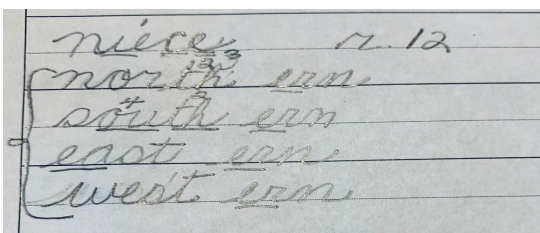 niece r. 12
north ern
south ern
east ern
west ern